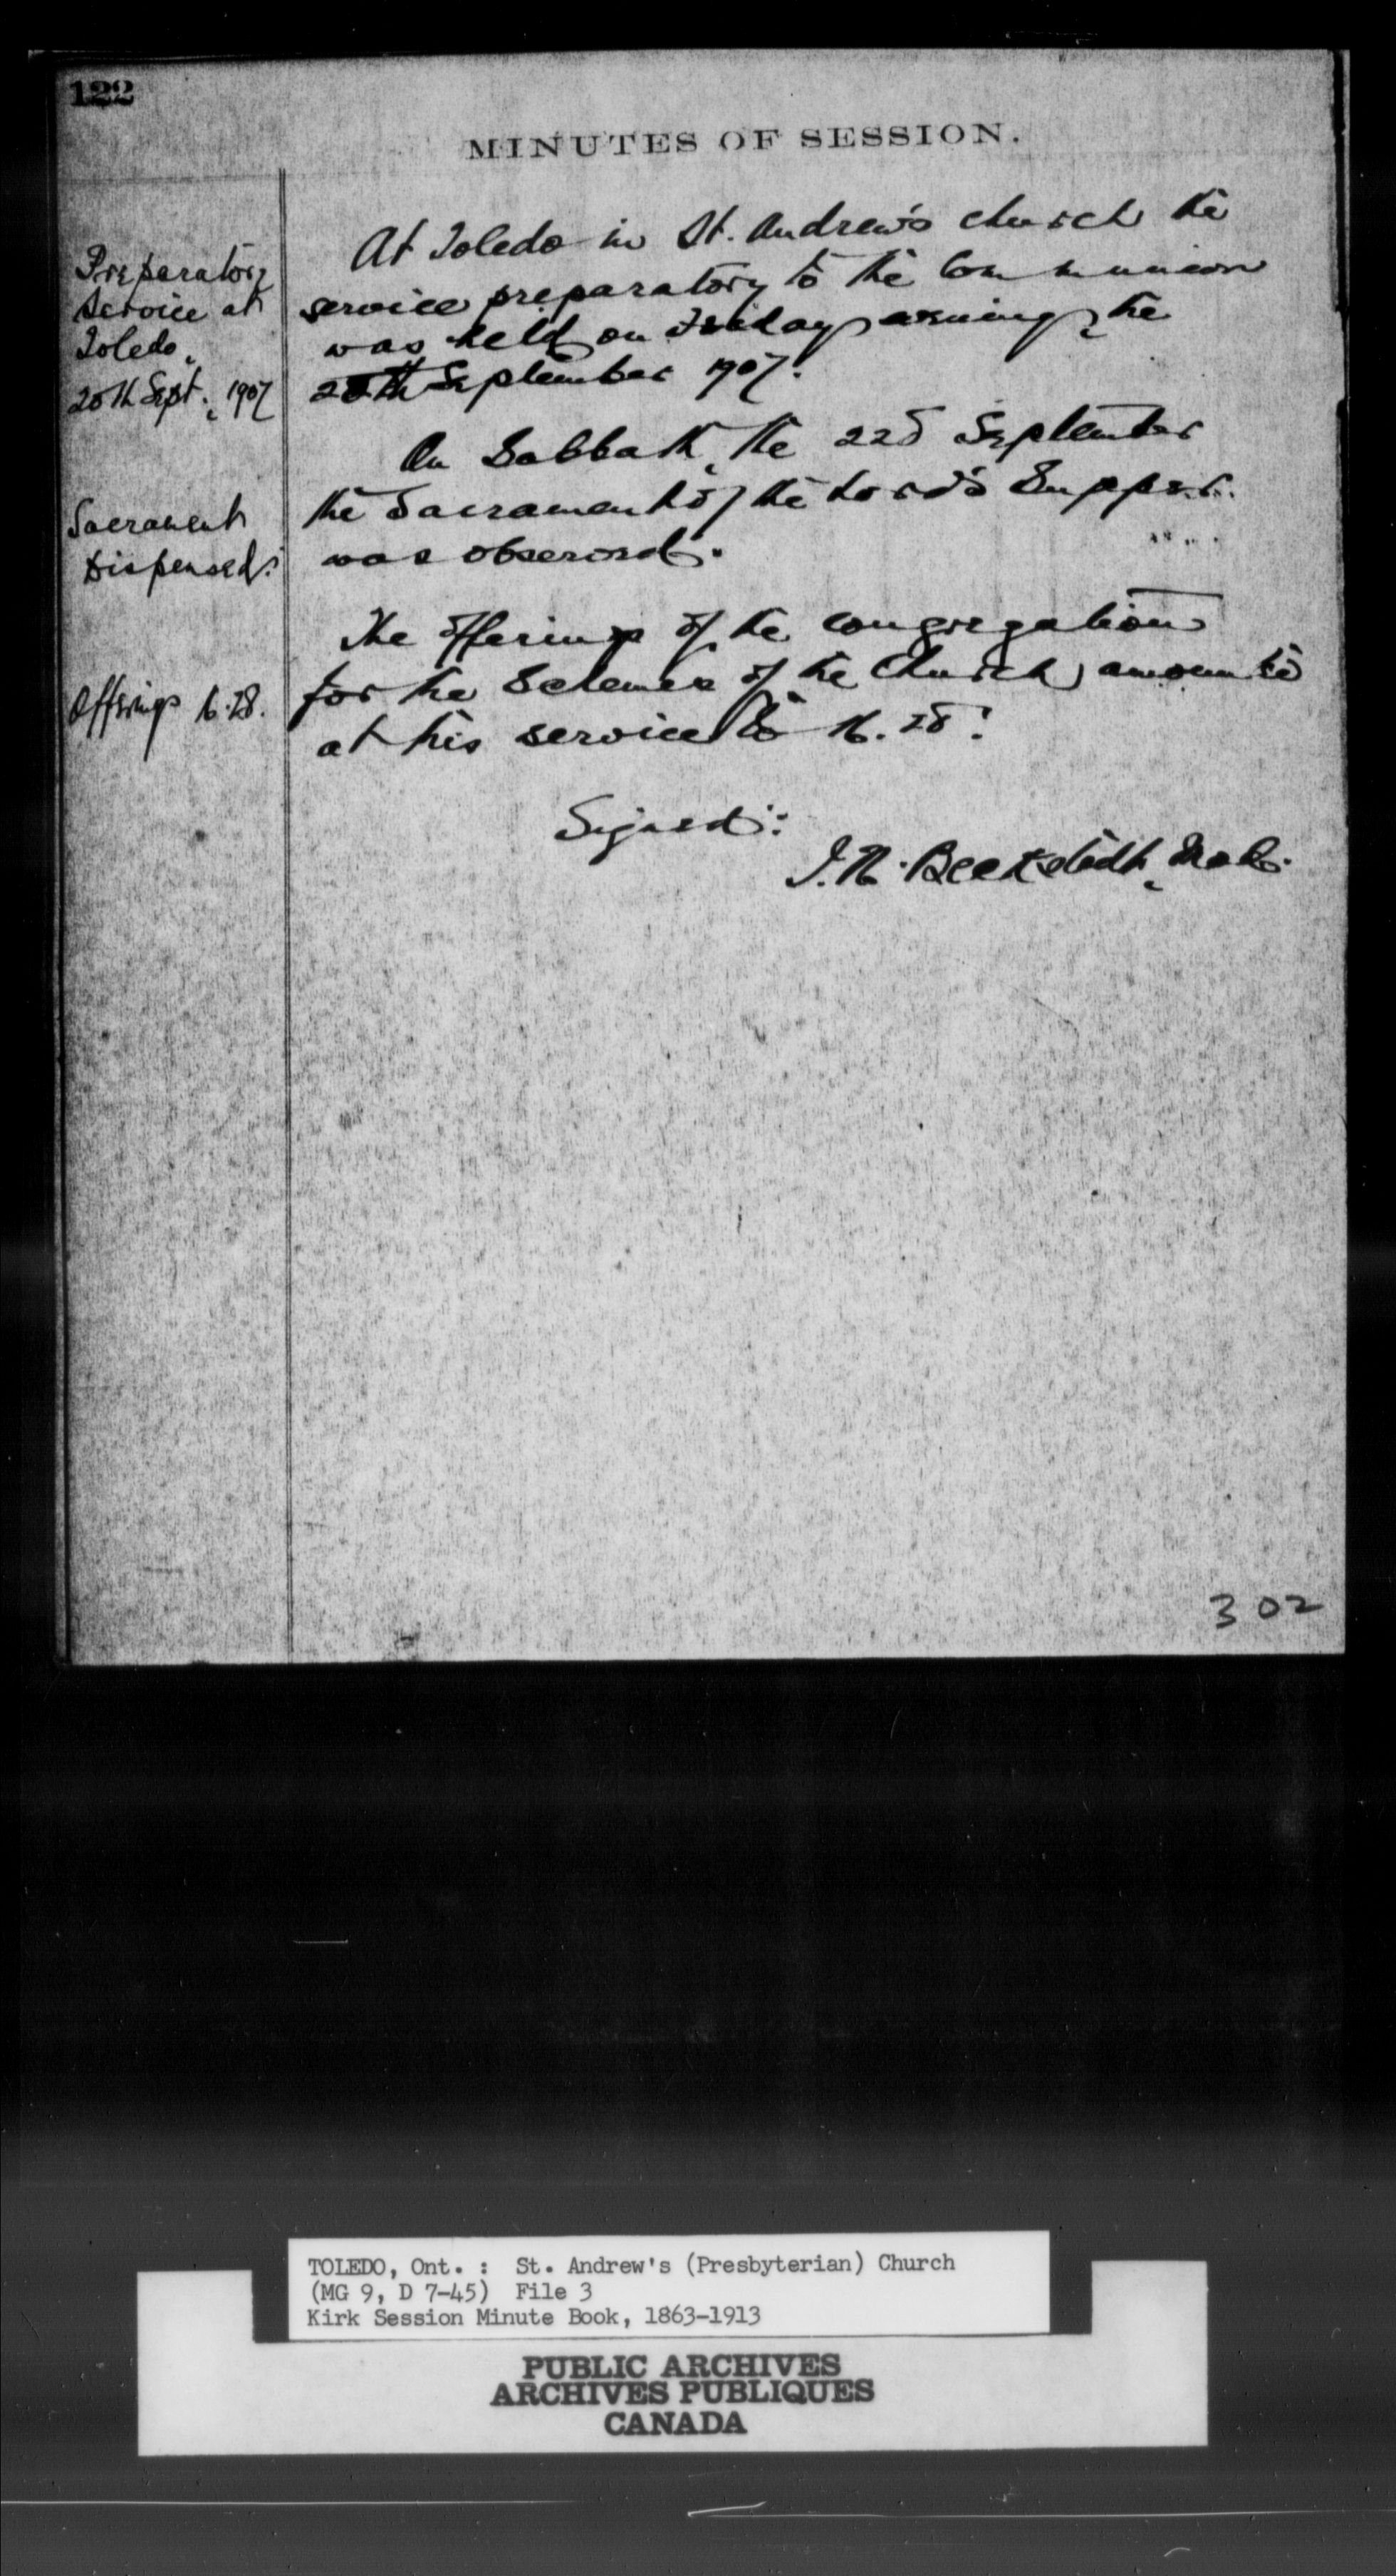 122
MINUTES OF SESSION.
Preparatory
Service at
Toledo,
20th Sept., 1907
At Toledo in St. Andrew's church the
service preparatory to the Communion
was held on Friday evening, the
20th September 1907.
On Sabbath, the 22d September
Sacrament
Dispensed.
the Sacrament of the Lord's Supper
was observed.
The offerings of the congregation
Offerings 16.28.
for the Schemes of the Church amounted
at this service to 16.28.
Signed:
J. N. Beckstedt, Mod.
302
TOLEDO, Ont. : St. Andrew's (Presbyterian) Church
(MG 9, D 7-45) File 3
Kirk Session Minute Book, 1863-1913
PUBLIC ARCHIVES
ARCHIVES PUBLIQUES
CANADA